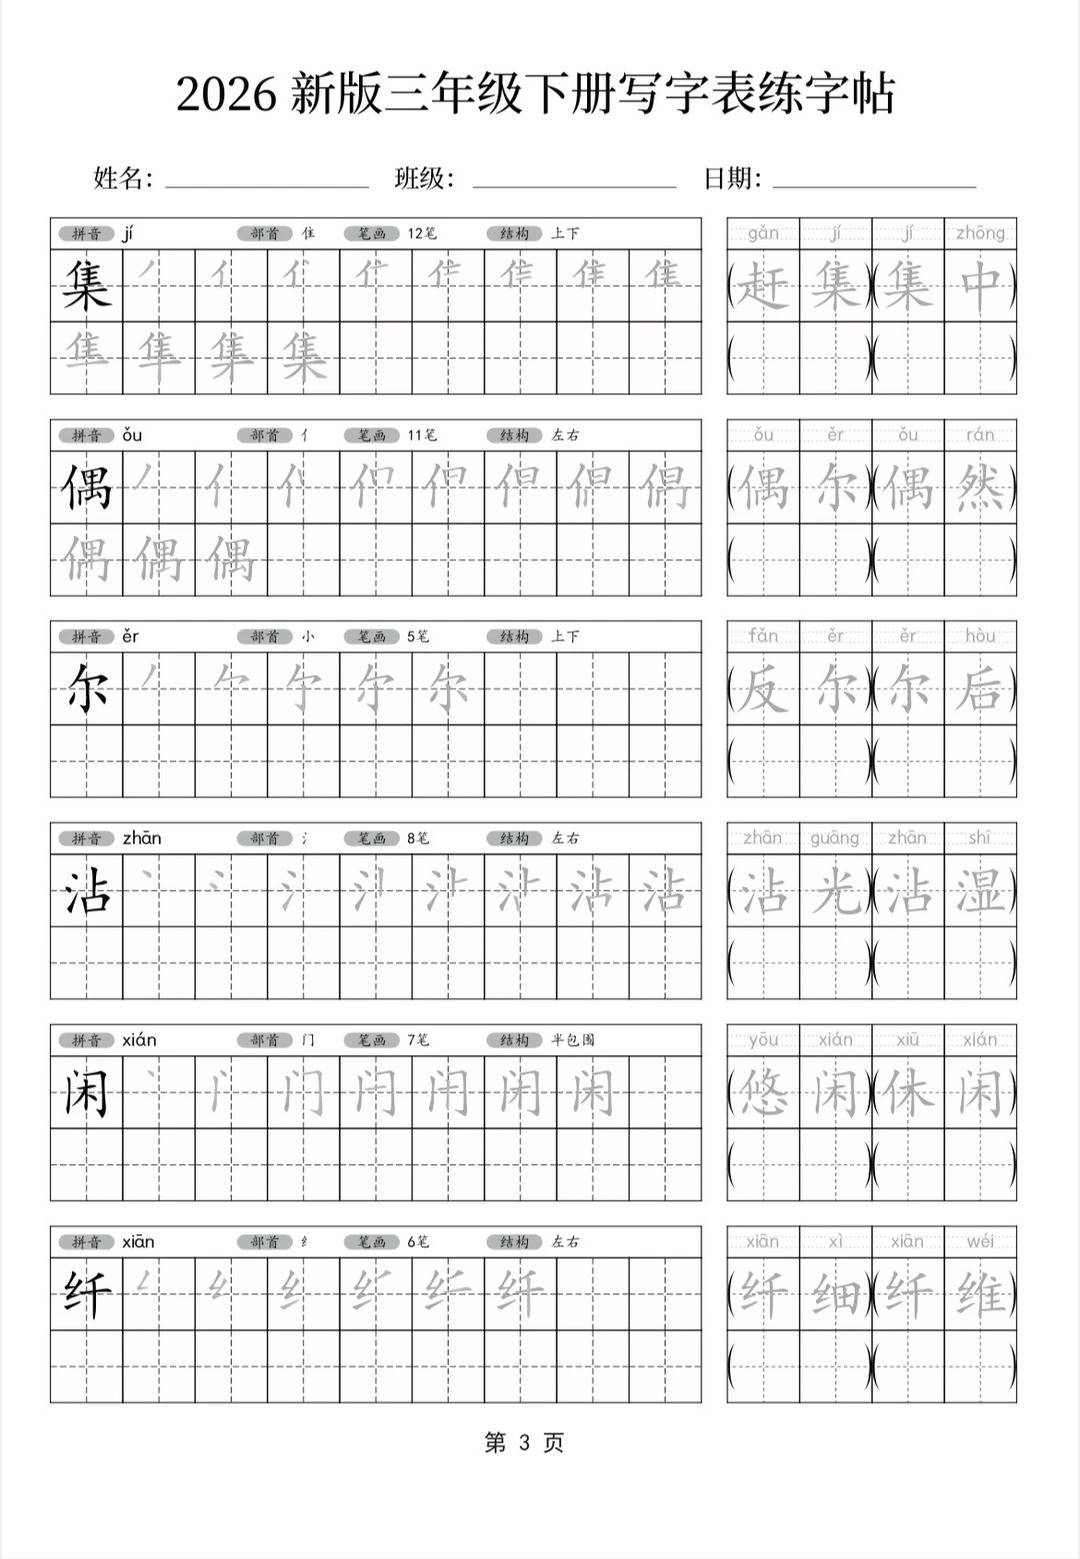 2026 新版三年级下册写字表练字帖
姓名： 班级： 日期：
拼音 jí 部首 隹 笔画 12笔 结构 上下
gǎn jí jí zhōng
集
(赶集)(集中)
隼 隼 隼 集
拼音 ǒu 部首 亻 笔画 11笔 结构 左右
ǒu ěr ǒu rán
偶
(偶尔)(偶然)
偶 偶 偶
拼音 ěr 部首 小 笔画 5笔 结构 上下
fǎn ěr ěr hòu
尔 尔
(反尔)(尔后)
拼音 zhān 部首 氵 笔画 8笔 结构 左右
zhān guāng zhān shī
沾 沾 沾
(沾光)(沾湿)
拼音 xián 部首 门 笔画 7笔 结构 半包围
yōu xián xiū xián
闲 门 闲 闲
(悠闲)(休闲)
拼音 xiān 部首 纟 笔画 6笔 结构 左右
xiān xì xiān wéi
纤 纟 纤
(纤细)(纤维)
第 3 页